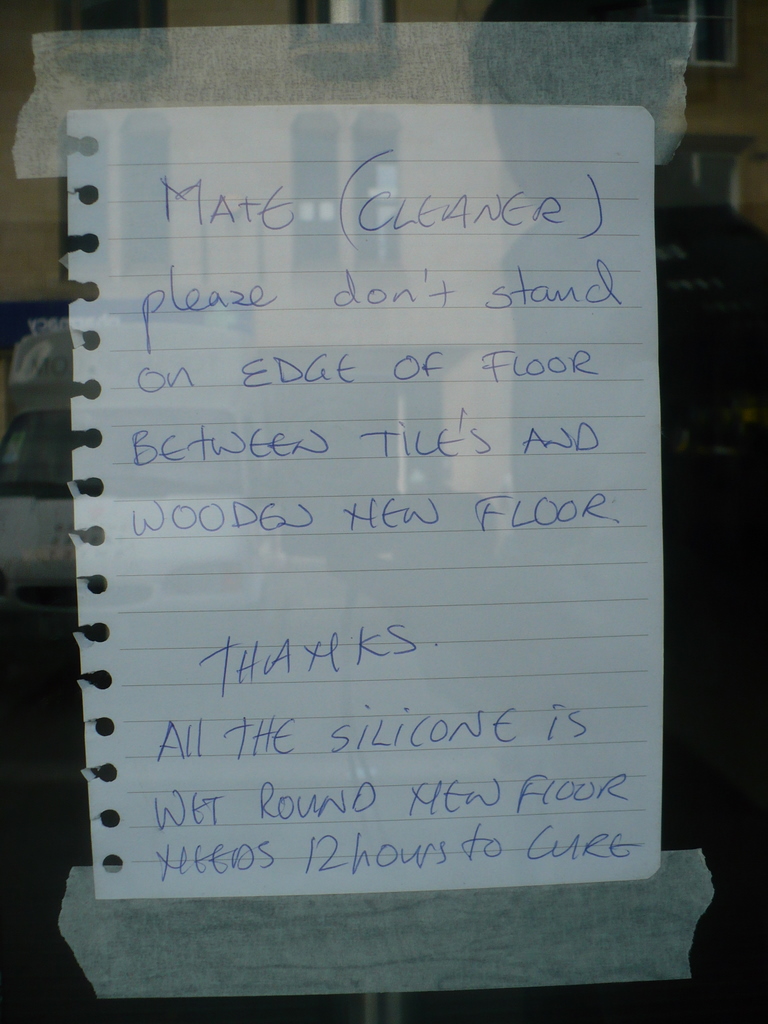 MATE (CLEANER)
please don't stand
on EDGE OF FLOOR
BETWEEN TILE'S AND
WOODEN NEW FLOOR.
THANKS.
All THE SILICONE is
WET ROUND NEW FLOOR
NEEDS 12 hours to CURE